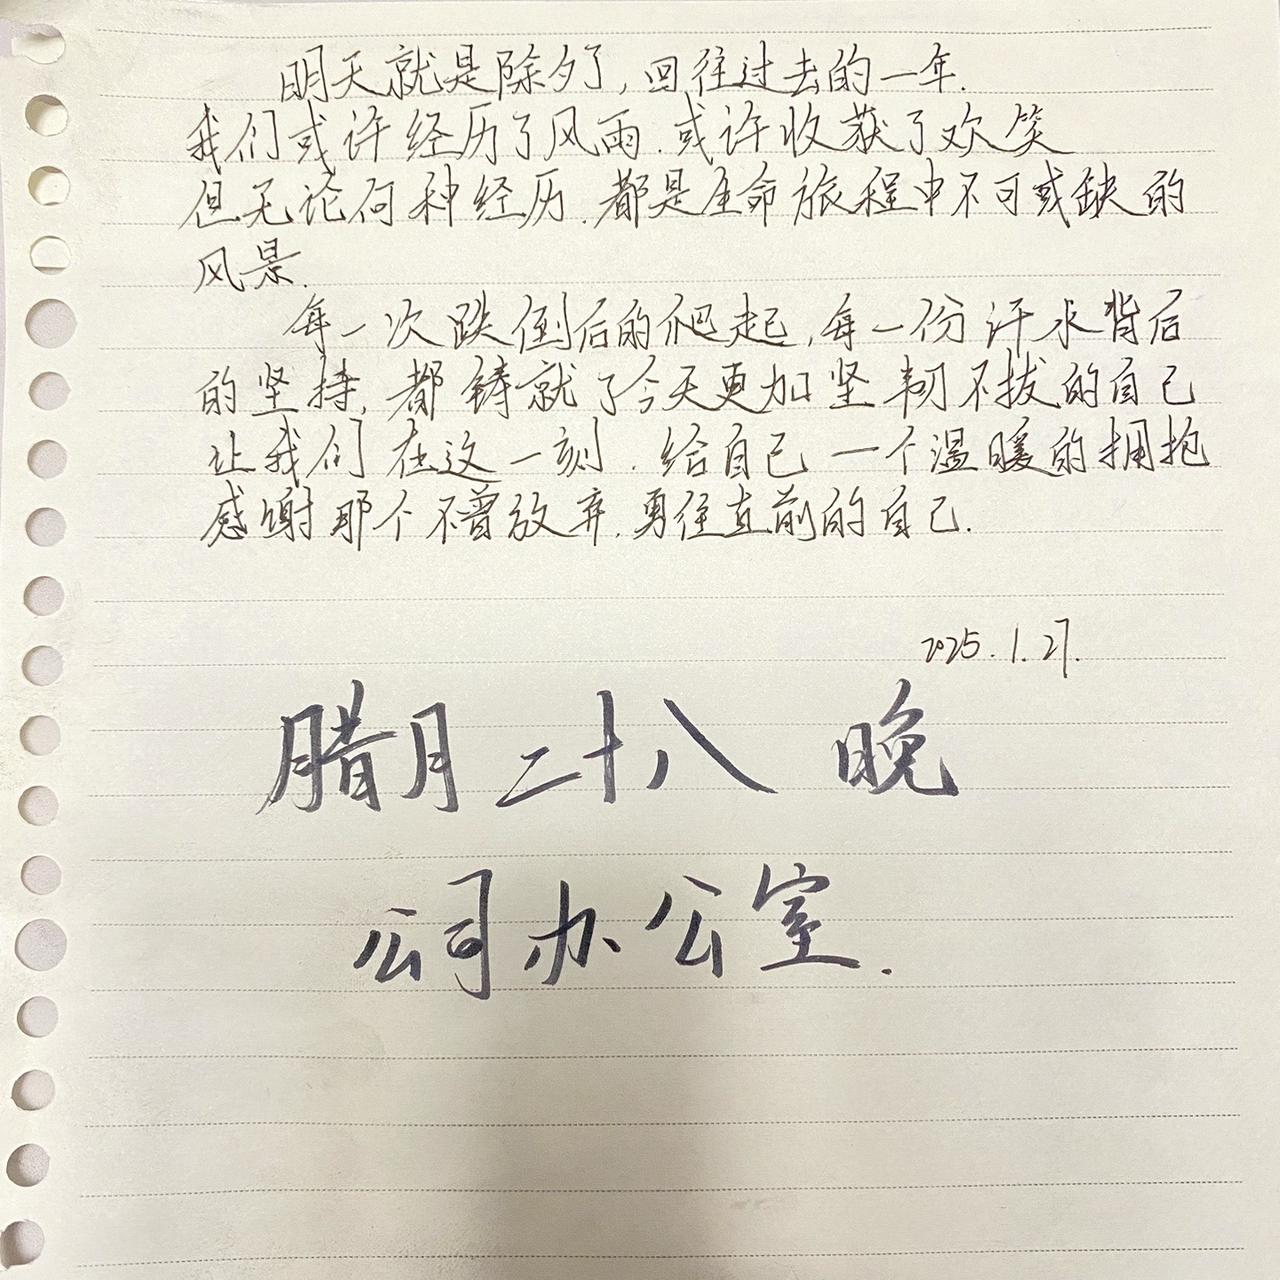 明天就是除夕了，回往过去的一年.
我们或许经历了风雨.或许收获了欢笑
但无论何种经历.都是生命旅程中不可或缺的
风景.
每一次跌倒后的爬起,每一份汗水背后
的坚持,都铸就了今天更加坚韧不拔的自己
让我们在这一刻.给自己一个温暖的拥抱
感谢那个不曾放弃.勇往直前的自己.
2025.1.27.
腊月二十八 晚
公司办公室.